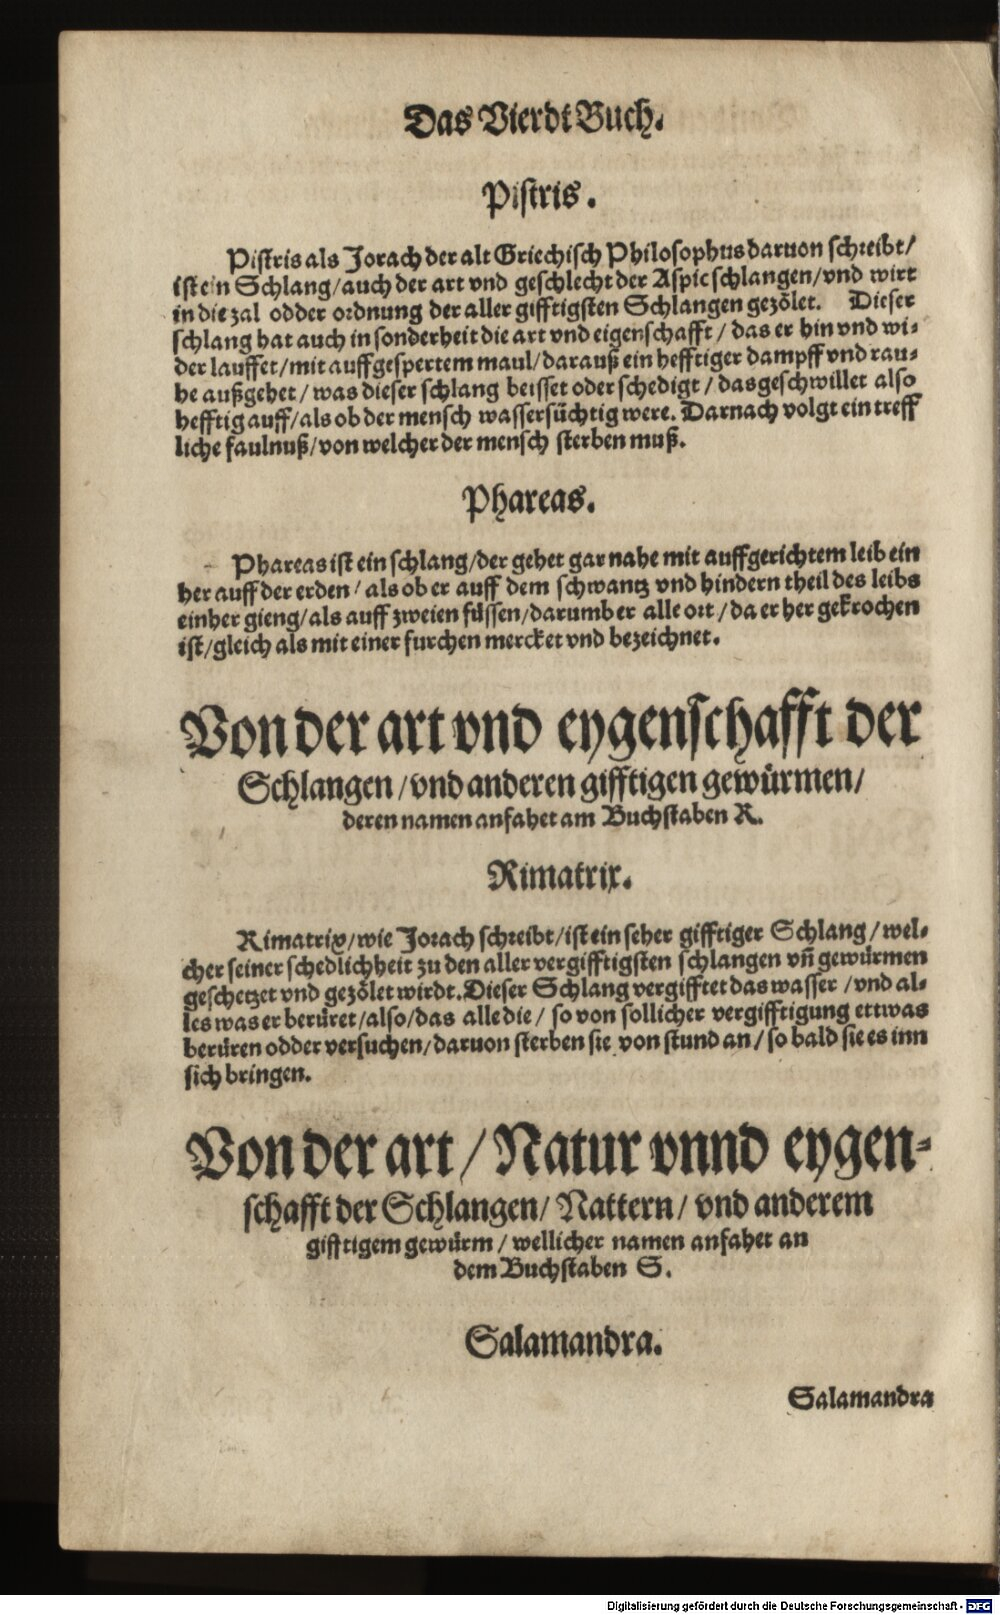 Das Vierdt Buch.
Pistris.
Pistris als Jorach der alt Griechisch Philosophus daruon schreibt/
ist ein Schlang/auch der art vnd geschlecht der Aspic schlangen/vnd wirt
in die zal odder ordnung der aller gifftigsten Schlangen gezölet. Dieser
schlang hat auch in sonderheit die art vnd eigenschafft/das er hin vnd wi-
der lauffet/mit auffgespertem maul/darauß ein hefftiger dampff vnd rau-
he außgehet/was dieser schlang beisset oder schedigt/das geschwillet also
hefftig auff/als ob der mensch wassersüchtig were. Darnach volgt ein treff
liche faulnuß/von welcher der mensch sterben muß.
Phareas.
Phareas ist ein schlang/der gehet gar nahe mit auffgerichtem leib ein
her auff der erden/als ob er auff dem schwantz vnd hindern theil des leibs
einher gieng/als auff zweien füssen/darumb er alle ort/da er her gekrochen
ist/gleich als mit einer furchen mercket vnd bezeichnet.
Von der art vnd eygenschafft der
Schlangen/vnd anderen gifftigen gewürmen/
deren namen anfahet am Buchstaben R.
Rimatrix.
Rimatrix/wie Jorach schreibt/ist ein seher gifftiger Schlang/wel-
cher seiner schedlichheit zu den aller vergifftigsten schlangen vñ gewürmen
geschetzet vnd gezölet wirdt. Dieser Schlang vergifftet das wasser/vnd al-
les was er berüret/also/das alle die/so von sollicher vergifftigung ettwas
berüren odder versuchen/daruon sterben sie von stund an/so bald sie es inn
sich bringen.
Von der art/Natur vnnd eygen-
schafft der Schlangen/Nattern/vnd anderem
gifftigem gewürm/wellicher namen anfahet an
dem Buchstaben S.
Salamandra.
Salamandra
Digitalisierung gefördert durch die Deutsche Forschungsgemeinschaft - DFG